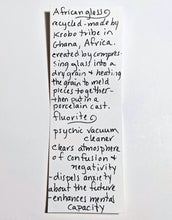 African glass
recycled - made by
Krobo tribe in
Ghana, Africa.
created by compres-
sing glass into a
dry grain & heating
the grain to meld
pieces together -
then put in a
porcelain cast.
fluorite
psychic vacuum
cleaner
clears atmosphere
of confusion &
negativity
- dispels anxiety
about the future
- enhances mental
capacity